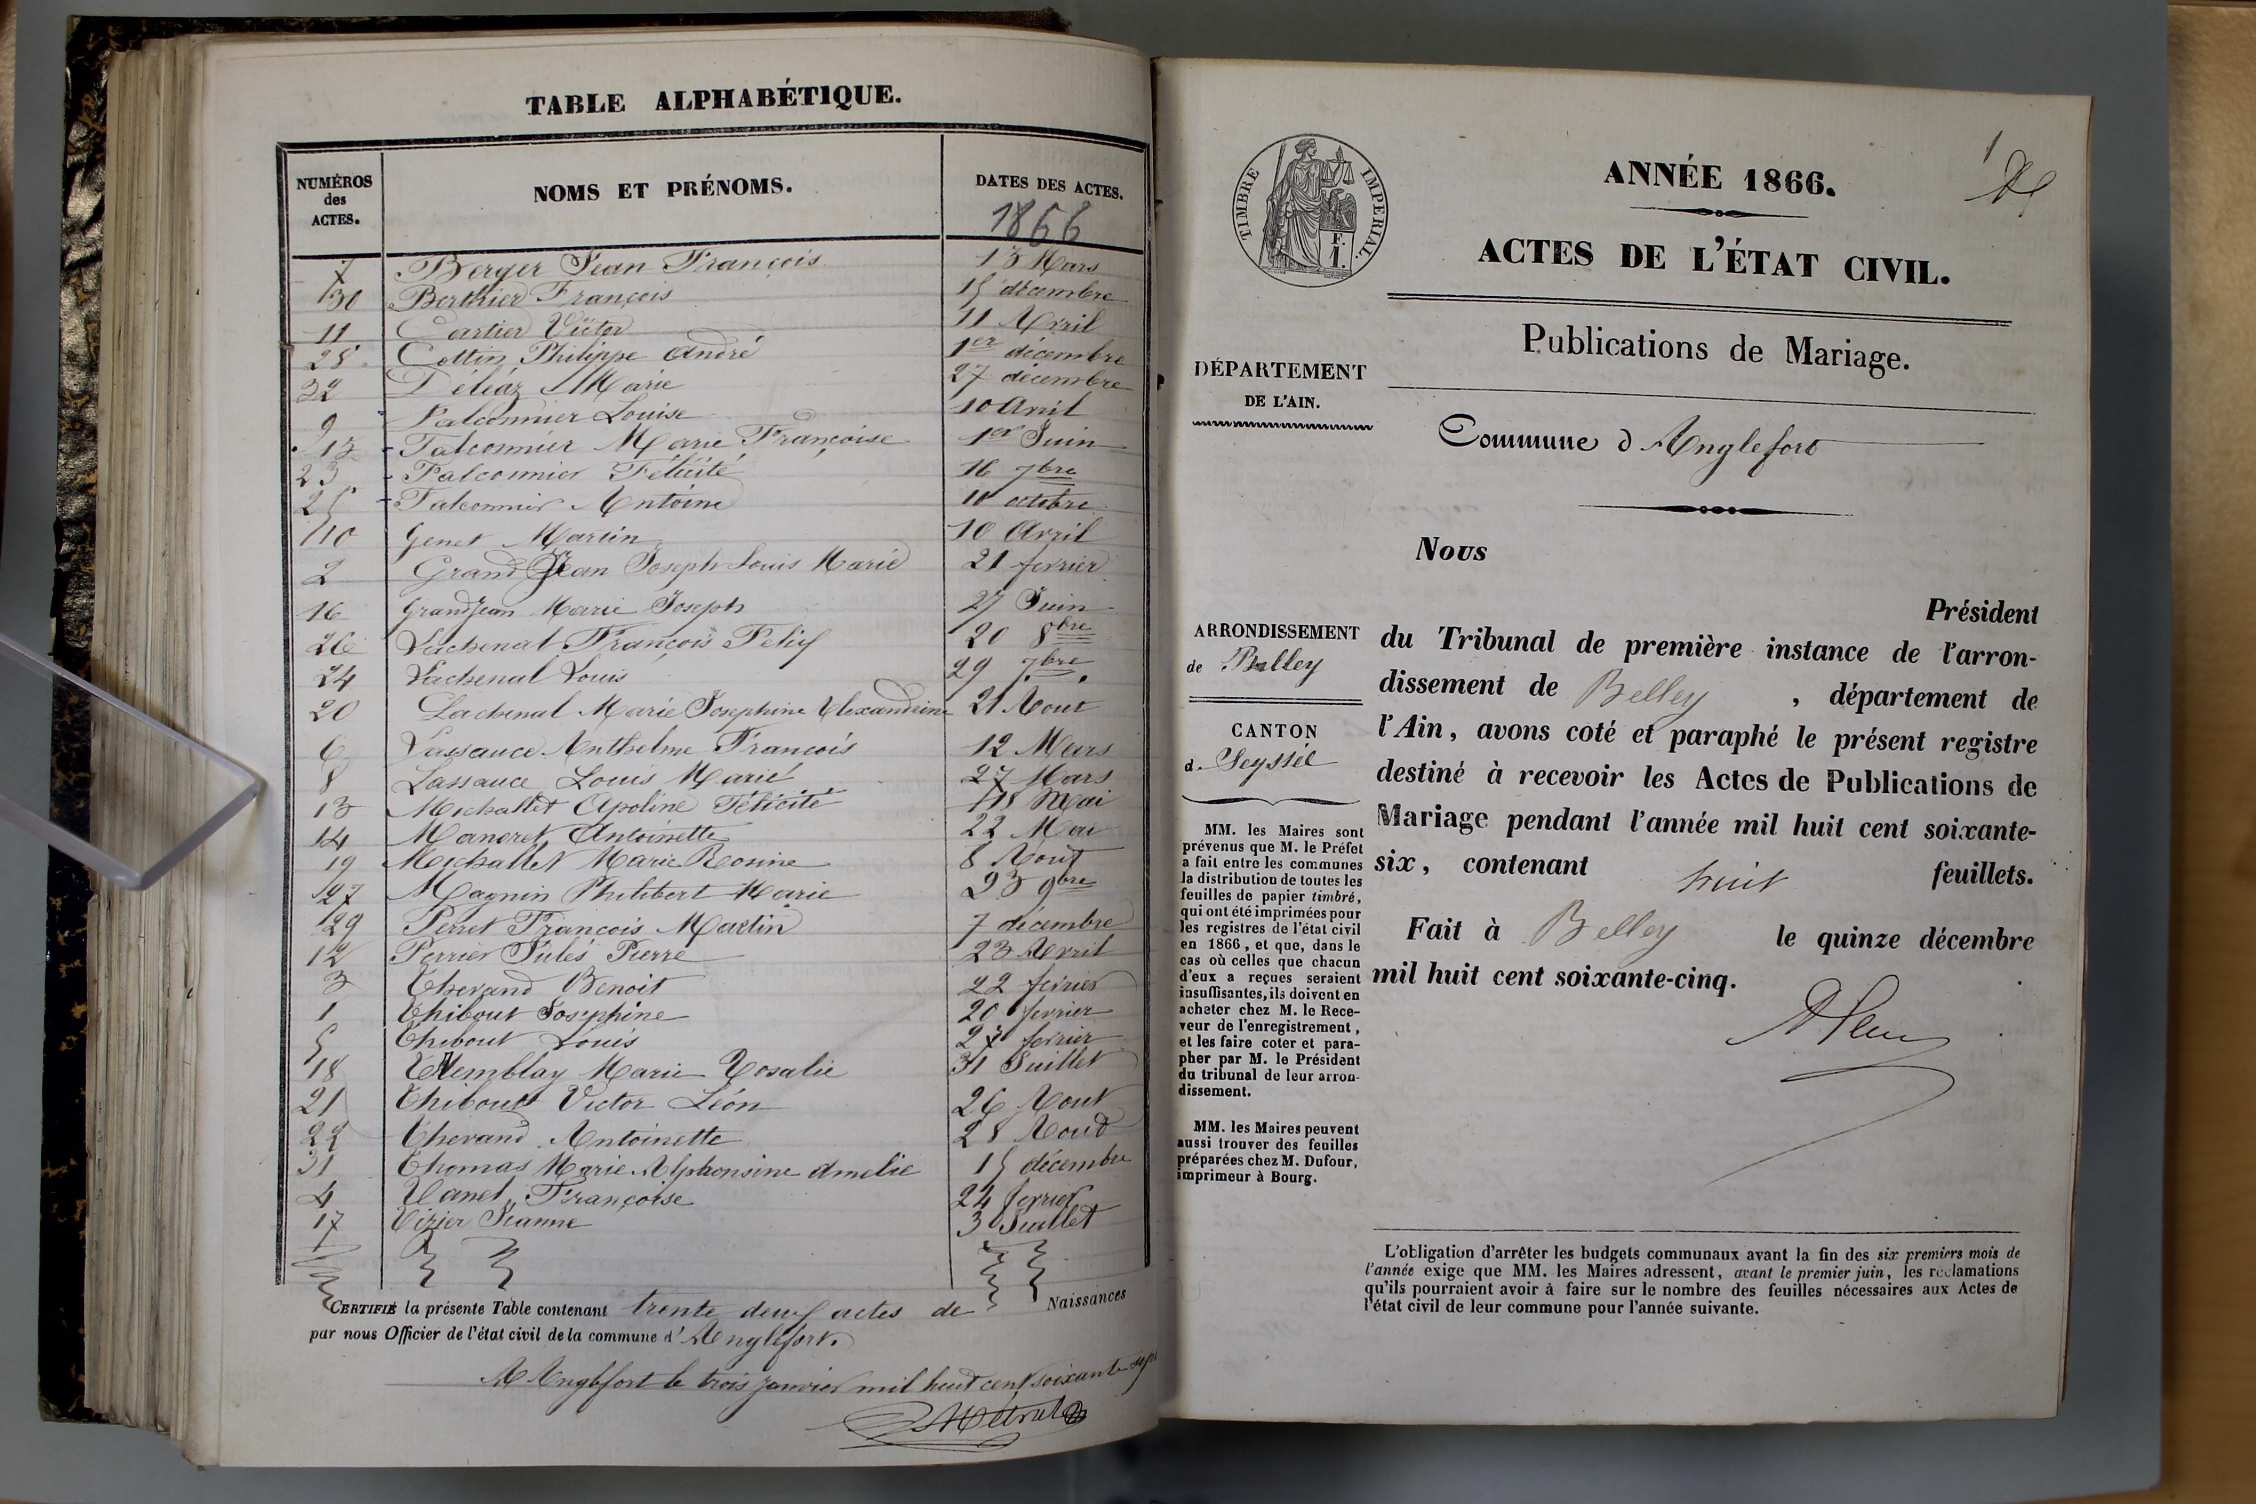 TABLE ALPHABÉTIQUE.
NUMÉROS des ACTES.
NOMS ET PRÉNOMS.
DATES DES ACTES.
1866
7 Berger Jean François 13 Mars
30 Berthier François 15 décembre
11 Cartier Victor 11 Avril
28 Cottin Philippe André 1er décembre
32 Déléaz Marie 27 décembre
9 Falconnier Louise 10 Avril
15 Falconnier Marie Françoise 1er Juin
23 Falconnier Félicité 16 7bre
25 Falconnier Antoine 10 octobre
10 Genet Martin 10 Avril
2 Grand Jean Joseph Louis Marie 21 février
16 Grandjean Marie Joseph 27 Juin
26 Lachenal François Félix 20 8bre
24 Lachenal Louis 29 7bre
20 Lachenal Marie Josephine Alexandrine 21 Aout
6 Lassauce Anthelme François 12 Mars
8 Lassauce Louis Marie 27 Mars
13 Michallet Apoline Félicité 18 Mai
14 Maneret Antoinette 22 Mai
19 Michallet Marie Rosine 8 Aout
27 Magnin Philibert Marie 23 9bre
29 Perret François Martin 7 décembre
12 Perrier Jules Pierre 23 Avril
3 Thevand Benoit 22 février
1 Thibout Josephine 20 fevrier
5 Thibout Louis 27 fevrier
18 Tremblay Marie Rosalie 31 Juillet
21 Thibout Victor Léon 26 Aout
22 Thevand Antoinette 28 Aout
31 Thomas Marie Alphonsine Amelie 15 décembre
4 Vanet Françoise 24 fevrier
17 Vizier Jeanne 30 Juillet
CERTIFIÉ la présente Table contenant trente deux actes de Naissances
par nous Officier de l'état civil de la commune d'Anglefort.
A Anglefort le trois janvier mil huit cent soixante sept
Métral
1
ANNÉE 1866.
TIMBRE IMPERIAL.
F.
1.
ACTES DE L'ÉTAT CIVIL.
Publications de Mariage.
DÉPARTEMENT
DE L'AIN.
Commune d'Anglefort
Nous
Président
ARRONDISSEMENT
de Belley
CANTON
d. Seyssel
du Tribunal de première instance de l'arron-
dissement de Belley, département de
l'Ain, avons coté et paraphé le présent registre
destiné à recevoir les Actes de Publications de
Mariage pendant l'année mil huit cent soixante-
six, contenant huit feuillets.
Fait à Belley le quinze décembre
mil huit cent soixante-cinq.
MM. les Maires sont
prévenus que M. le Préfet
a fait entre les communes
la distribution de toutes les
feuilles de papier timbré,
qui ont été imprimées pour
les registres de l'état civil
en 1866, et que, dans le
cas où celles que chacun
d'eux a reçues seraient
insuffisantes, ils doivent en
acheter chez M. le Rece-
veur de l'enregistrement,
et les faire coter et para-
pher par M. le Président
du tribunal de leur arron-
dissement.
MM. les Maires peuvent
aussi trouver des feuilles
préparées chez M. Dufour,
imprimeur à Bourg.
L'obligation d'arrêter les budgets communaux avant la fin des six premiers mois de
l'année exige que MM. les Maires adressent, avant le premier juin, les réclamations
qu'ils pourraient avoir à faire sur le nombre des feuilles nécessaires aux Actes de
l'état civil de leur commune pour l'année suivante.